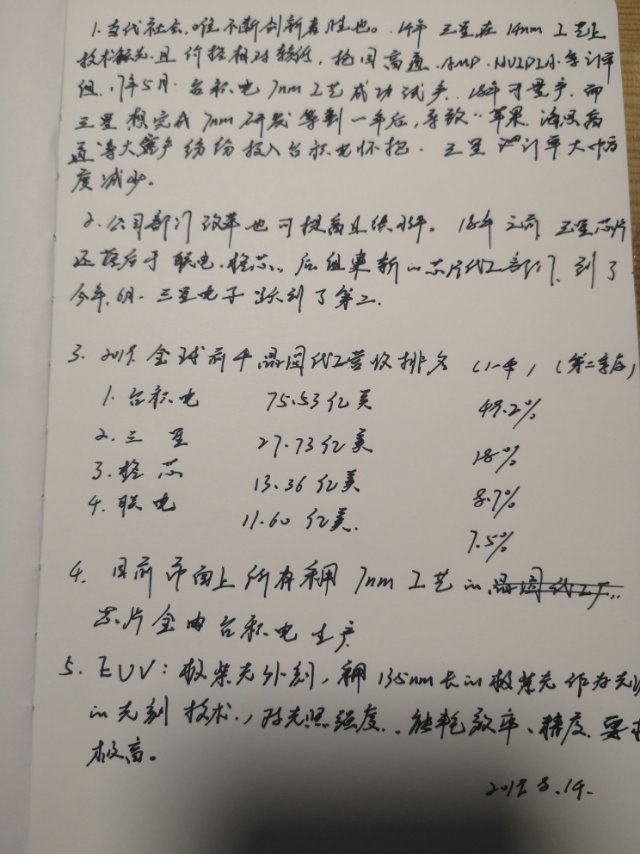 1. 当代社会，唯不断创新者胜也。14年 三星在14nm工艺上
技术领先且价格相对较低，抢回高通、AMP、NVIDIA等订单
但17年5月 台积电7nm工艺成功试产，18年可量产，而
三星想完成7nm研发等到一年后，导致：苹果、海思高
通等大客户纷纷投入台积电怀抱。三星订单大幅
度减少。
2. 公司部门改革也可提高业绩水平。18年之前 三星芯片
还落后于联电、格芯，后组建新的芯片代工部门，到了
今年6月 三星电子跃到了第二.
3. 2019 全球前 晶圆代工营收排名 (第二季度)
1. 台积电 75.53亿美 49.2%
2. 三星 27.73亿美 18%
3. 格芯 13.36亿美 8.7%
4. 联电 11.60亿美 7.5%
4. 目前市面上所有采用7nm工艺的晶圆代工厂
芯片全由台积电生产
5. EUV：极紫光外刻，采用135nm长的极紫光作为光
的光刻技术，对光照强度、能耗效率、精度、要
极高。
2019.8.14.